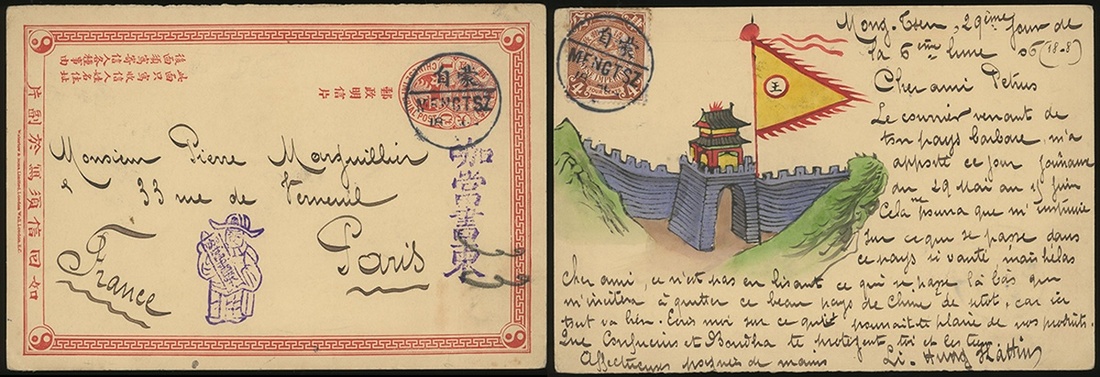 此面只寫收信人名住址
後面須寫寄信人各事由
郵政明信片
片副於寫須信回如
Waterlow & Sons Limited, London Wall, London, E.C.
蒙自
MENGTSZ
18
咖當書柬
Monsieur Pierre Marguillier
33 rue de Verneuil
Paris
France
33
蒙自
MENGTSZ
18
王
Mong-Tseu, 29ème jour de
la 6ème lune 06 (18-8)
Cher ami Petrus
Le courrier venant de
ton pays barbare, m'a
apporté ce jour journaux
du 29 Mai au 15 Juin
Cela pourra que m'instruire
sur ce qui se passe dans
ce pays si vanté, mais hélas
Cher ami, ce n'est pas en lisant ce qui se passe là bas que
m'invitera à quitter ce beau pays de Chine de sitôt, car ici
tout va bien. Ecris moi sur ce qui pourrait te plaire de nos produits.
Que Confucius et Bouddha te protègent toi et les tiens
Affectueuses poignées de mains
Li-Hung